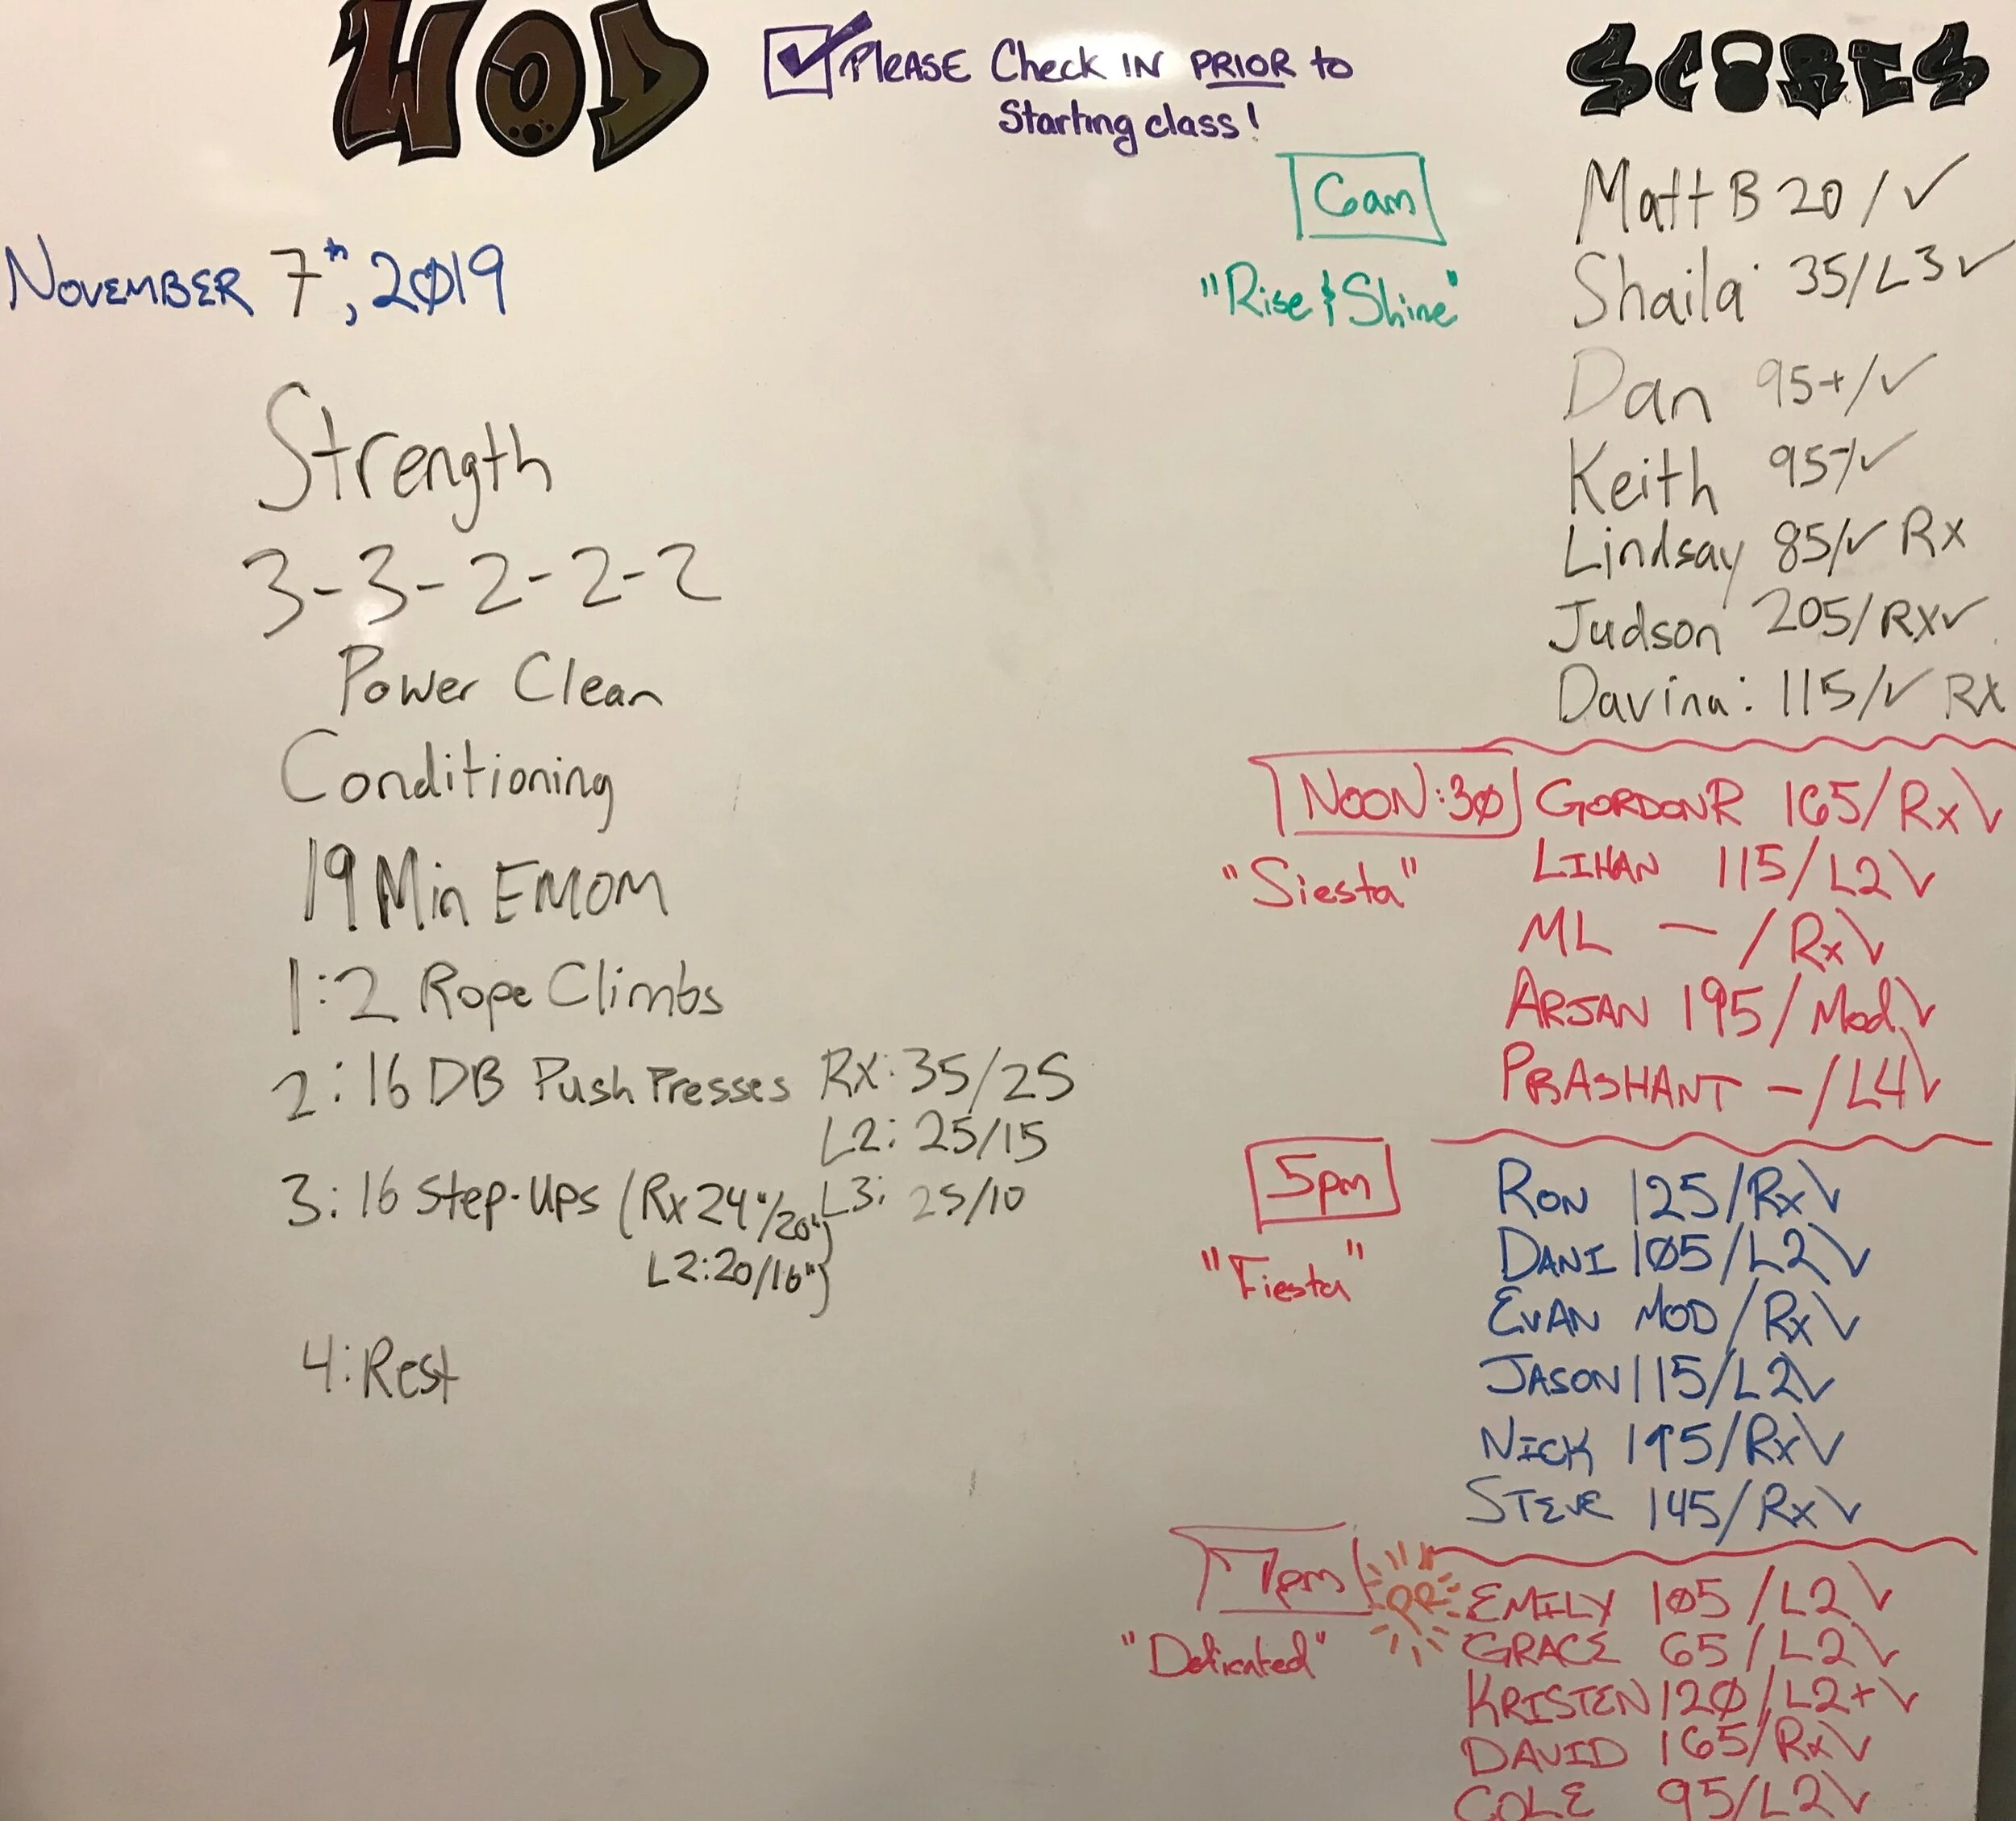 WOD
PLEASE Check IN PRIOR to
Starting class!
NOVEMBER 7th, 2019
Strength
3-3-2-2-2
Power Clean
Conditioning
19 Min EMOM
1:2 Rope Climbs
2:16 DB Push Presses Rx: 35/25
L2: 25/15
L3: 25/10
3:16 Step-Ups (Rx 24"/20")
L2:20/16")
4:Rest
SCORES
6am
"Rise & Shine"
Matt B 20/✓
Shaila 35/L3✓
Dan 95+/✓
Keith 95-/✓
Lindsay 85/✓ Rx
Judson 205/RX✓
Davina: 115/✓ RX
NOON:30
"Siesta"
GORDON R 165/Rx✓
LIHAN 115/L2✓
ML —/Rx✓
ARJAN 195/Mod✓
PRASHANT -/L4✓
5pm
"Fiesta"
RON 125/Rx✓
DANI 105/L2✓
EVAN MOD/Rx✓
JASON 115/L2✓
NICK 195/Rx✓
STEVE 145/Rx✓
7pm
"Dedicated"
PR
EMILY 105/L2✓
GRACE 65/L2✓
KRISTEN 120/L2+✓
DAVID 165/Rx✓
COLE 95/L2✓